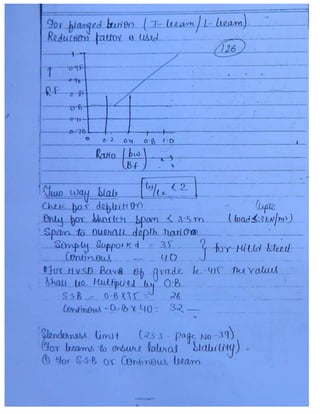 For flanged section (T-beam / L-beam)
Reduction factor is used
126
R.F
0 0.2 0.4 0.8 1.0
Ratio (bw/Bf)
Two way Slab ly/lx < 2
Check for deflection
Only for Shorter Span < 3.5m (load ≤ 3 KN/m²)
(upto
Span to overall depth ratio
Simply Supported = 35
Continous - 40
} for Mild Steel
* For HYSD Bars of grade fe 415 the values
shall be Multiplied by 0.8
S.S.B - 0.8 X 35 = 28
Continous - 0.8 X 40 = 32
Slenderness limit (23.3 - Page No-39)
(For beams to ensure lateral Stability) -
① For S.S.B or Continous beam